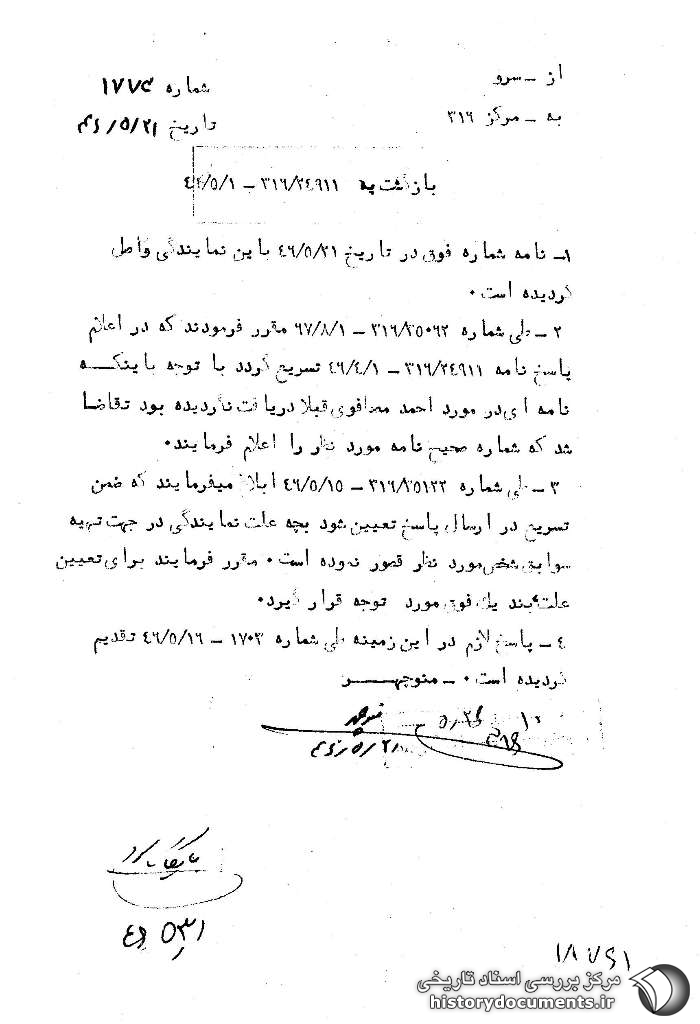 از - سرو
شماره ۱۷۷۴
به - مرکز ۳۱۶
تاریخ ۴۶/۵/۲۱
بازگشت به ۳۱۶/۲۴۹۱۱ - ۴۶/۵/۱
۱- نامه شماره فوق در تاریخ ۴۶/۵/۲۱ باین نمایندگی واصل
گردیده است ۰
۲ - طی شماره ۳۱۶/۲۵۰۶۲ - ۶۷/۸/۱ مقرر فرمودند که در اعلام
پاسخ نامه ۳۱۶/۲۴۹۱۱ - ۴۶/۴/۱ تسریع گردد با توجه باینکه
نامه ای در مورد احمد صدافوی قبلا دریافت نگردیده بود تقاضا
شد که شماره صحیح نامه مورد نظر را اعلام فرمایند۰
۳ - طی شماره ۳۱۶/۲۵۱۲۲ - ۴۶/۵/۱۵ ابلاغ میفرمایند که ضمن
تسریع در ارسال پاسخ تعیین شود بچه علت نمایندگی در جهت تهیه
سوابق شخص مورد نظر قصور نموده است ۰ مقرر فرمایند برای تعیین
علت بند یک فوق مورد توجه قرار گیرد۰
۴ - پاسخ لازم در این زمینه طی شماره ۱۷۰۳ - ۴۶/۵/۱۶ تقدیم
گردیده است ۰ - منوچهر
بایگانی شود
۴۶/۵/۳۱
۱۸۷۶۱
مرکز بررسی اسناد تاریخی
historydocuments.ir